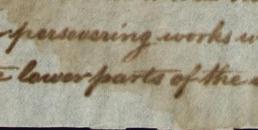 persevering works
lower parts of the